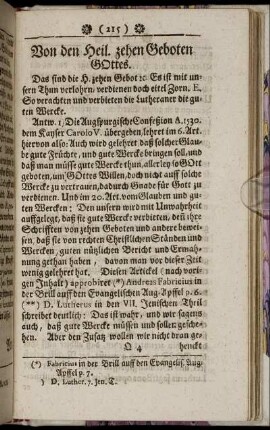 (215)
Von den Heil. zehen Geboten
GOttes.
Das sind die H. zehen Gebot ꝛc. Es ist mit un-
sern Thun verlohrn, verdienen doch eitel Zorn. E,
So verachten und verbieten die Lutheraner die gu-
ten Wercke.
Antw. 1/ Die Augspurgische Confeßion A. 1530.
dem Kayser Carolo V. übergeben, lehret im 6. Art.
hier von also: Auch wird gelehret daß solcher Glau-
be gute Früchte, und gute Wercke bringen soll, und
daß man müsse gute Wercke thun allerley so GOtt
geboten, um GOttes Willen, doch nicht auff solche
Wercke zu vertrauen, dadurch Gnade für Gott zu
verdienen. Und im 20. Art. vom Glauben und gu-
ten Wercken: Den unsern wird mit Unwahrheit
auffgelegt, daß sie gute Wercke verbieten, denn ihre
Schrifften von zehen Geboten und andere bewei-
sen, daß sie von rechten Christlichen Ständen und
Wercken, guten nützlichen Bericht und Ermah-
nung gethan haben, davon man vor dieser Zeit
wenig gelehret hat. Diesen Artickel (nach vori-
gen Inhalt) approbiret (*) Andreas Fabricius in
der Brill auff den Evangelischen Aug-Apffel p. 6.
(**) D. Lutherus in den VII. Jenischen Theil
schreibet deutlich: Das ist wahr, und wir sagens
auch, daß gute Wercke müssen und sollen gesche-
hen. Aber den Zusatz wollen wir nicht dran ge-
Q 4 henckt
(*) Fabricius in der Brill auff den Evangelis. Aug-
Apffel p. 7.
) D. Luther. 7. Jen. T.